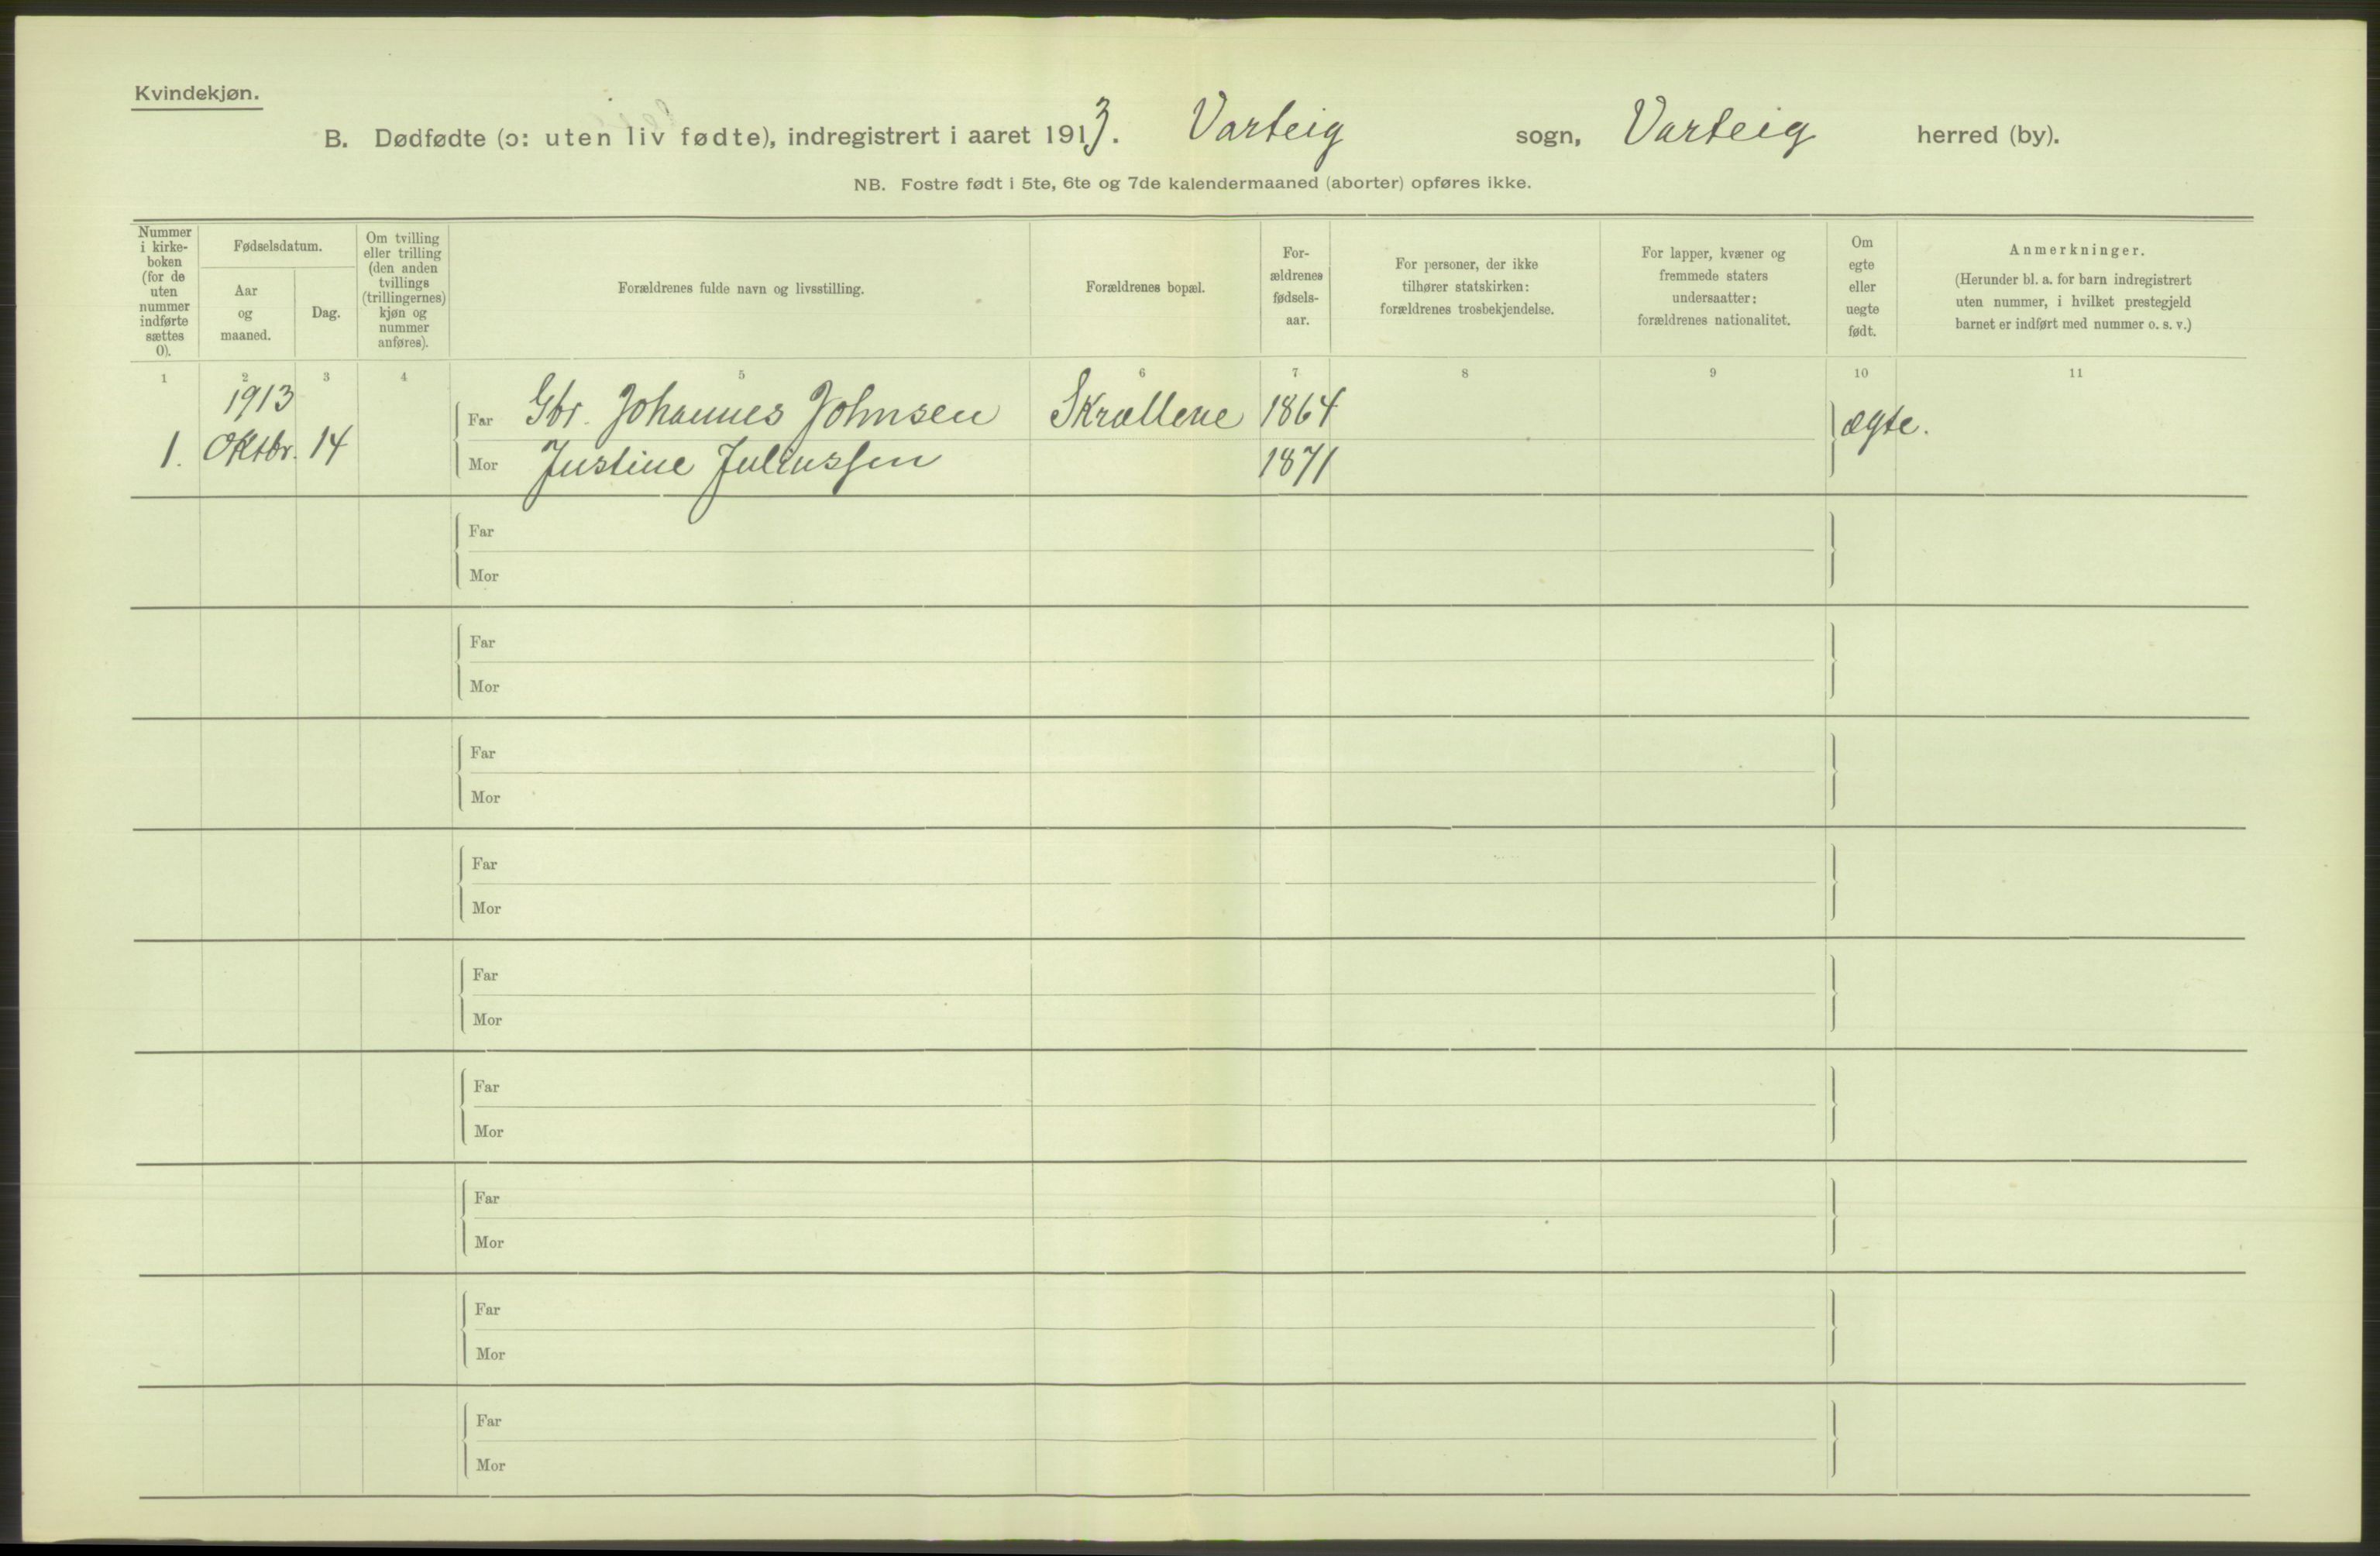 Kvindekjøn.
B. Dødfødte (ɔ: uten liv fødte), indregistrert i aaret 1913. Varteig sogn, Varteig herred (by).
NB. Fostre født i 5te, 6te og 7de kalendermaaned (aborter) opføres ikke.
Nummer
i kirke-
boken
(for de
uten
nummer
indførte
sættes
0).
Fødselsdatum.
Aar
og
maaned.
Dag.
Om tvilling
eller trilling
(den anden
tvillings
(trillingernes)
kjøn og
nummer
anføres).
Forældrenes fulde navn og livsstilling.
Forældrenes bopæl.
For-
ældrenes
fødsels-
aar.
For personer, der ikke
tilhører statskirken:
forældrenes trosbekjendelse.
For lapper, kvæner og
fremmede staters
undersaatter:
forældrenes nationalitet.
Om
egte
eller
uegte
født.
Anmerkninger.
(Herunder bl. a. for barn indregistrert
uten nummer, i hvilket prestegjeld
barnet er indført med nummer o. s. v.)
1 2 3 4 5 6 7 8 9 10 11
1913
Far Gbr. Johannes Johnsen Skrællene 1864 ægte.
1. Oktbr. 14
Mor Justine Juliussen 1871
Far
Mor
Far
Mor
Far
Mor
Far
Mor
Far
Mor
Far
Mor
Far
Mor
Far
Mor
Far
Mor